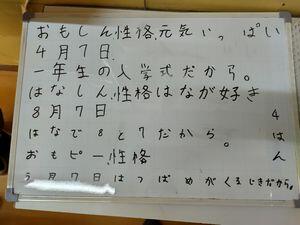 おもしん性格、元気いっぱい
4月7日、
一年生の入学式だから。
はなしん、性格はなが好き
8月7日
はなで8と7だから。
おもピー、性格
5月7日はつばめがくるじきだから。
4
は
ん